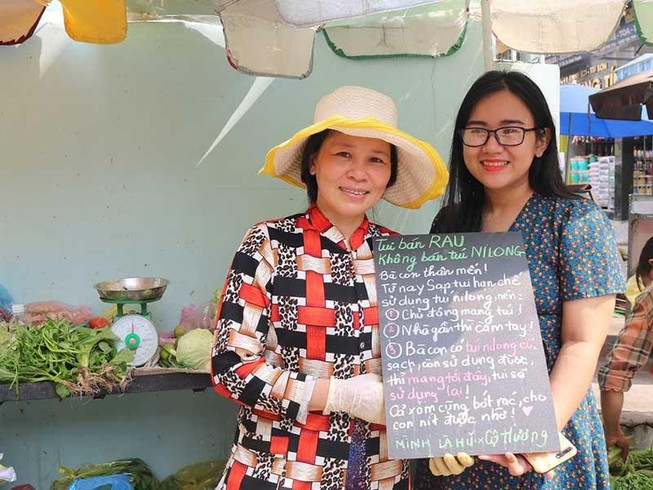 Tui bán RAU
Không bán túi NILONG
Bà con thân mến!
Từ nay Sạp tui hạn chế
sử dụng túi nilong, nên:
① Chủ động mang túi!
② Nhà gần thì cầm tay!
③ Bà con có túi nilong cũ,
sạch, còn sử dụng được,
thì mang tới đây, tui sẽ
sử dụng lại!
Cả xóm cùng bớt rác, cho
con nít được nhờ!
MÌNH LÀ HƯ x Cô Hương